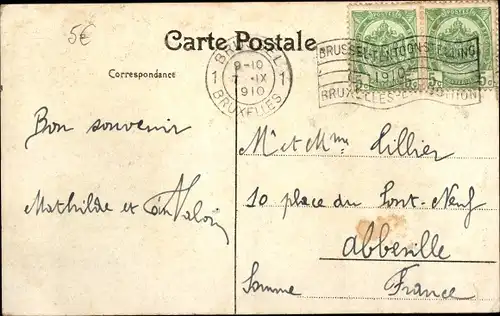 5€
Carte Postale
Correspondance
BRUSSEL
9-10
1 7 IX 1
1910
BRUXELLES
BRUSSEL-TENTOONSTELLING
1910
BRUXELLES-EXPOSITION
POSTES
5c 5c
Bon souvenir
Mathilde et Valois
Mr et Mme Lillier
10 place du Pont-Neuf
Abbeville
Somme France